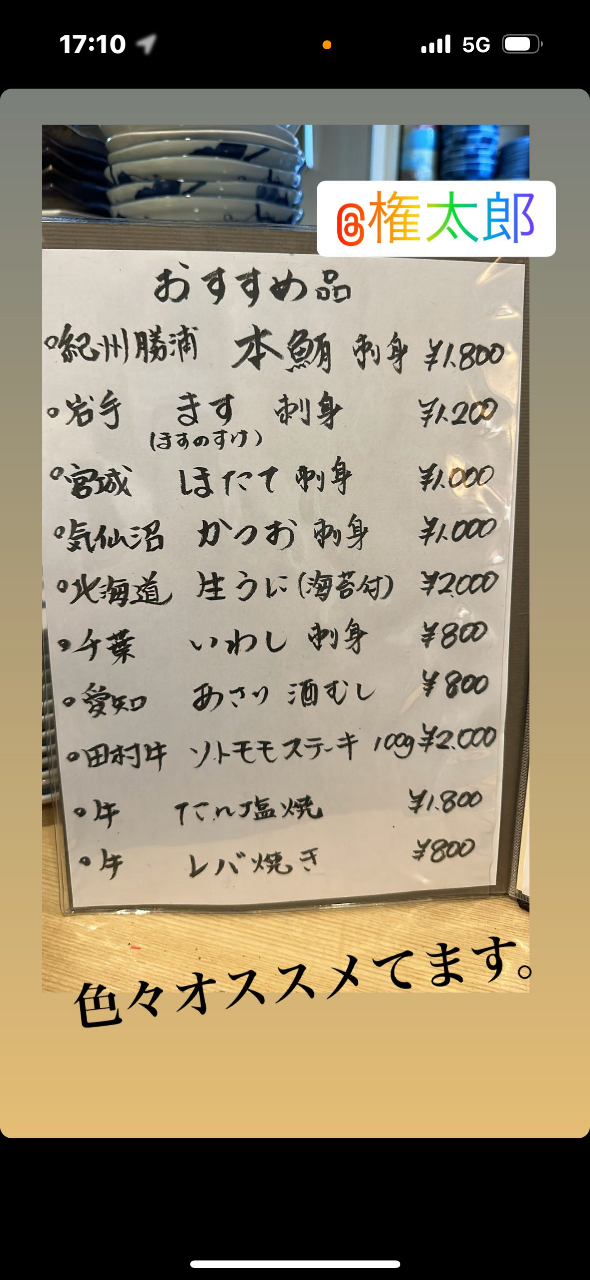 17:10
5G
@権太郎
おすすめ品
紀州勝浦 本鮪 刺身 ¥1.800
岩手 ます 刺身 ¥1.200
(ますのすけ)
宮城 ほたて 刺身 ¥1.000
気仙沼 かつお 刺身 ¥1.000
北海道 生うに(海苔付) ¥2.000
千葉 いわし 刺身 ¥800
愛知 あさり 酒むし ¥800
田村牛 ソトモモステーキ 100g ¥2.000
牛 塩焼 ¥1.800
牛 レバ焼き ¥800
色々オススメてます。